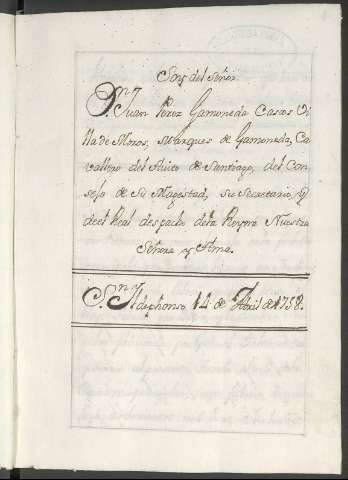 Son del Señor
D.ⁿ Juan Perez Gamoneda Casos Vi
lla de Moros, Marques de Gamoneda, Ca
vallero del Avito de Santiago, del Con
sejo de Su Magestad, su Secretario, y
de el Real despacho de la Reyna Nuestra
Señora y Ama.
S.ⁿ Ildephonso 14 de Abril de 1758.